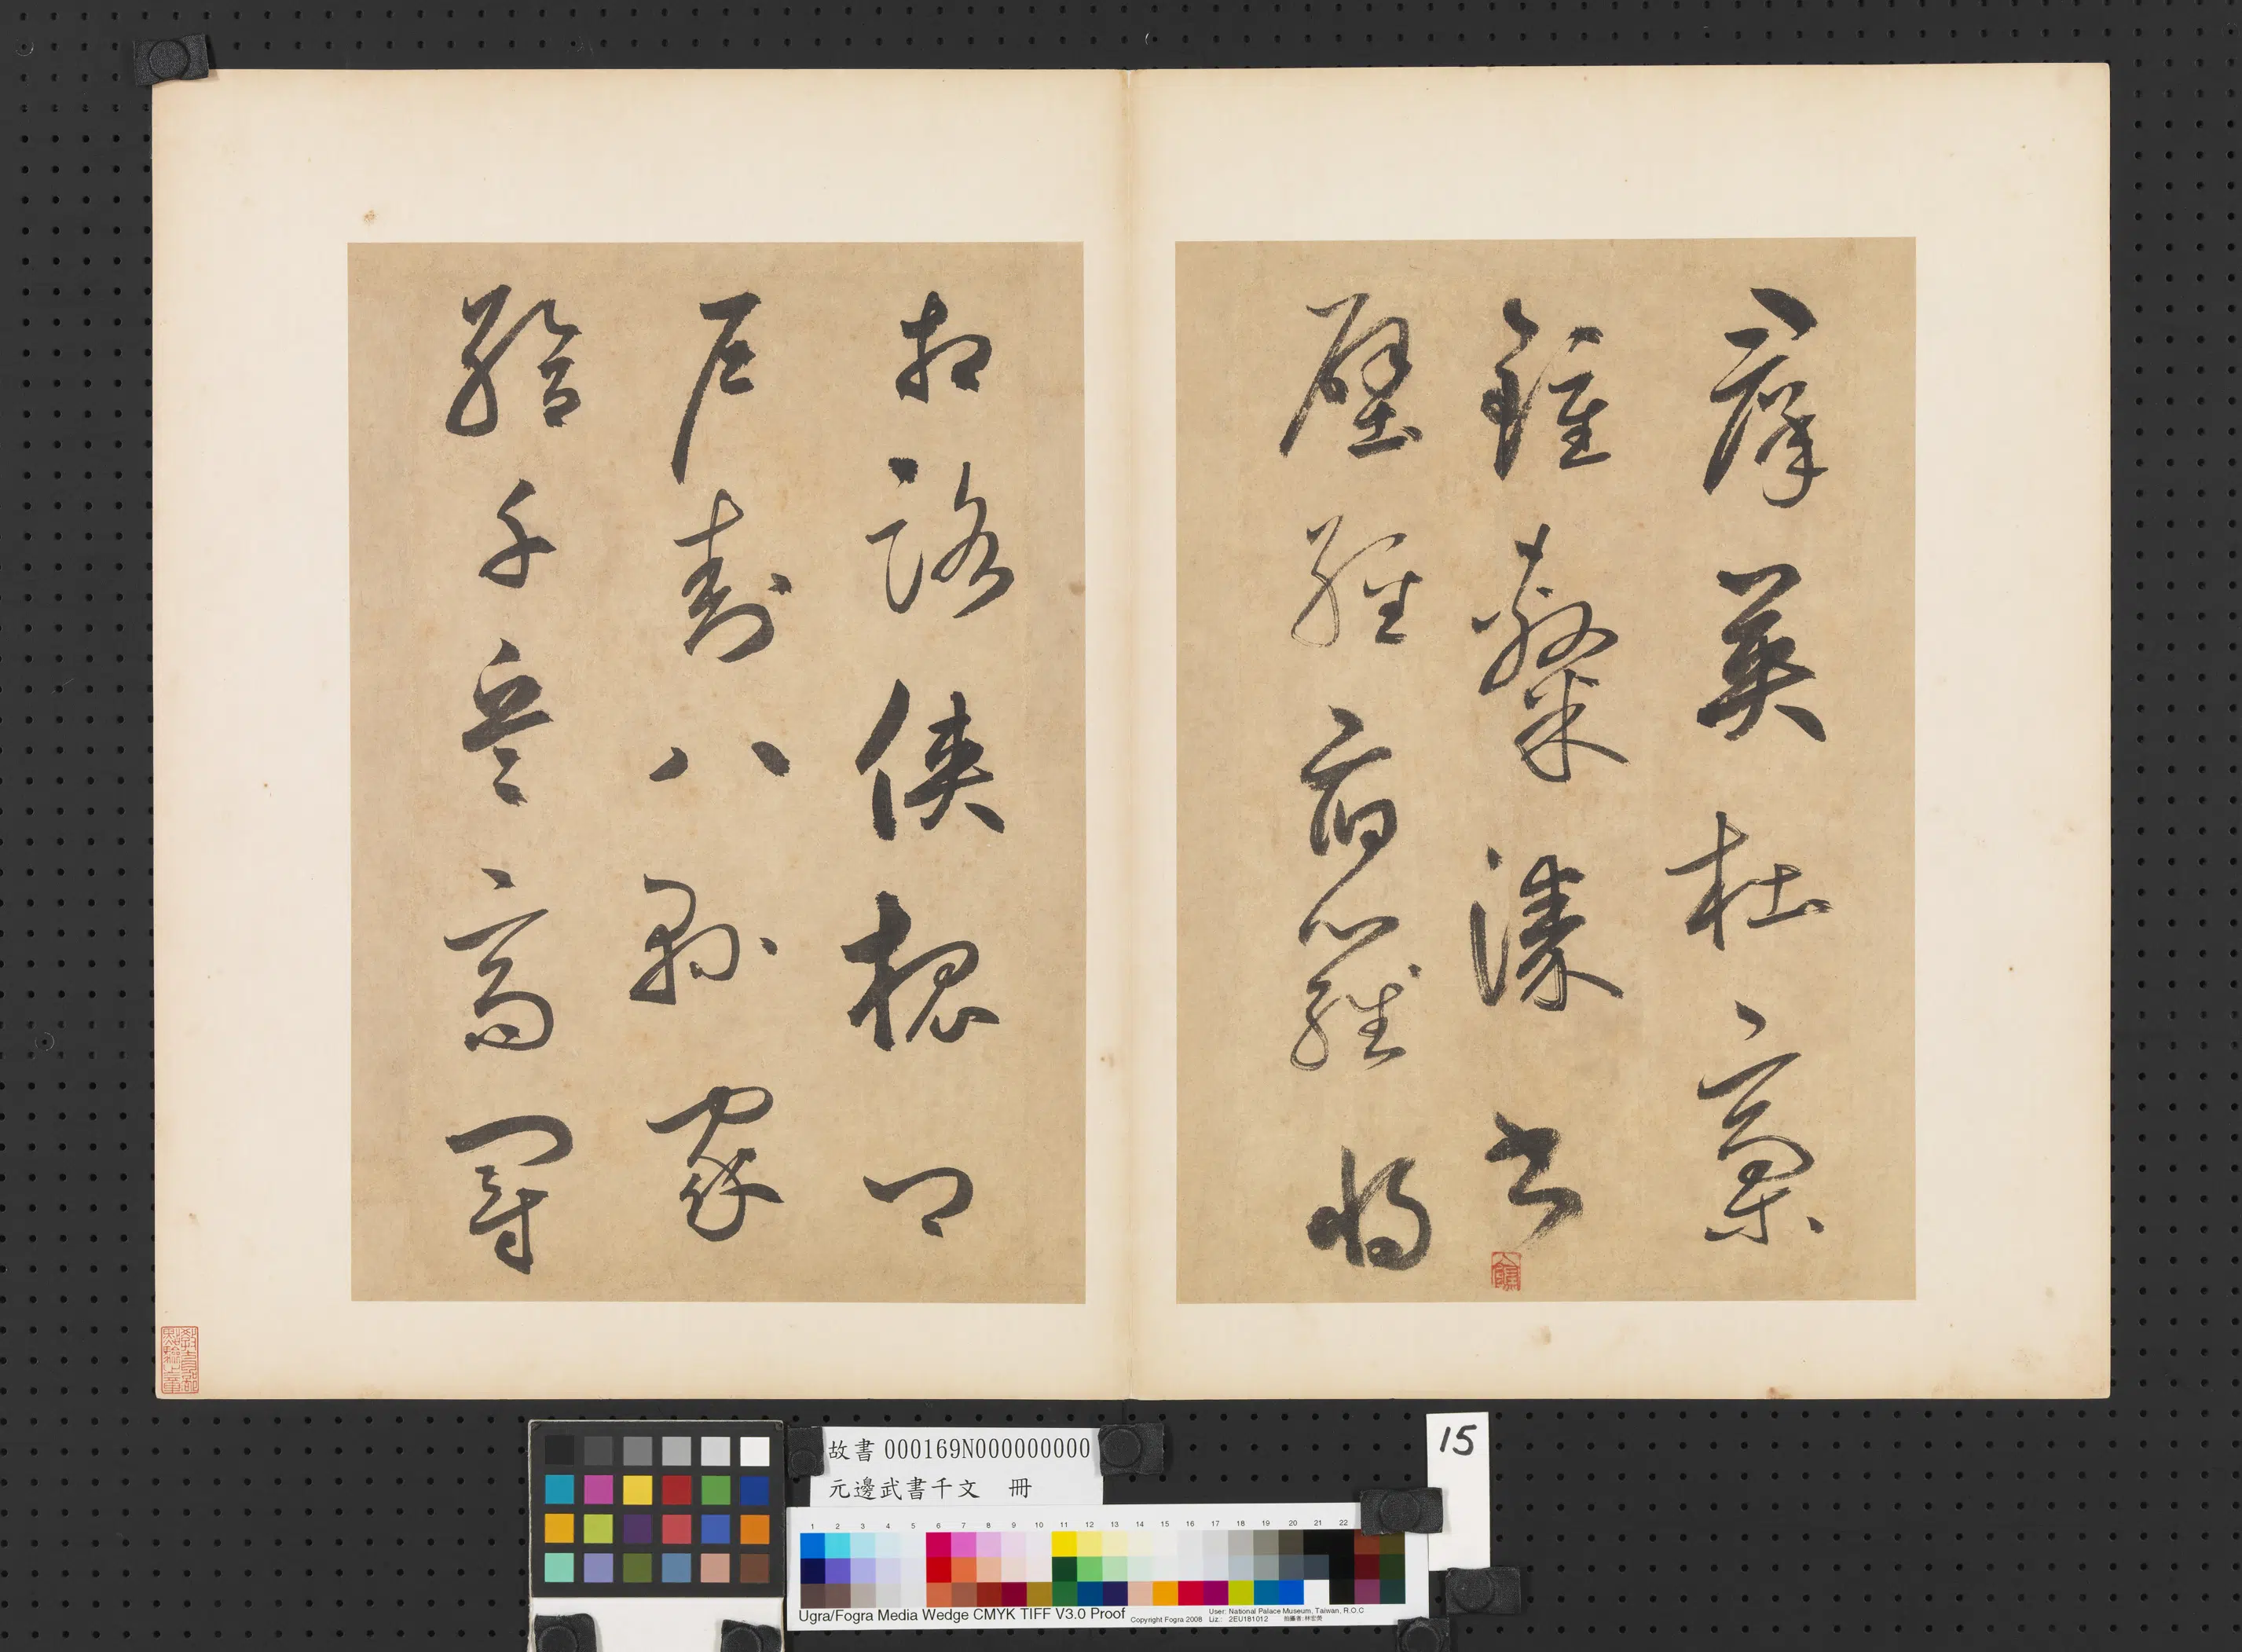 羣英杜稾
鍾隸漆書
壁經府羅將
相路俠槐卿
戶封八縣家
給千兵高冠
教育部點驗之章
故書000169N000000000
元邊武書千文 冊
15
1 2 3 4 5 6 7 8 9 10 11 12 13 14 15 16 17 18 19 20 21 22
Ugra/Fogra Media Wedge CMYK TIFF V3.0 Proof
Copyright Fogra 2008
User: National Palace Museum, Taiwan, R.O.C
Liz.: 2EU181012